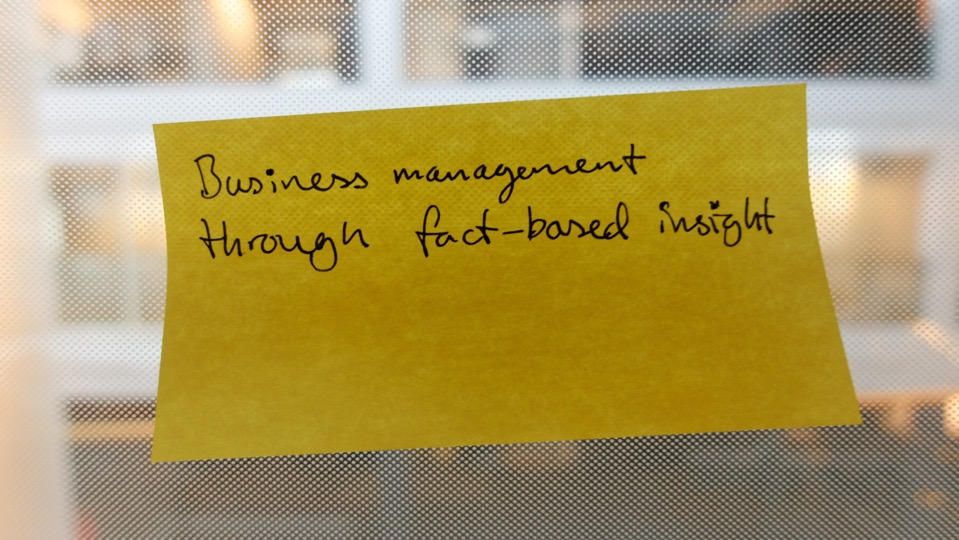 Business management
through fact-based insight